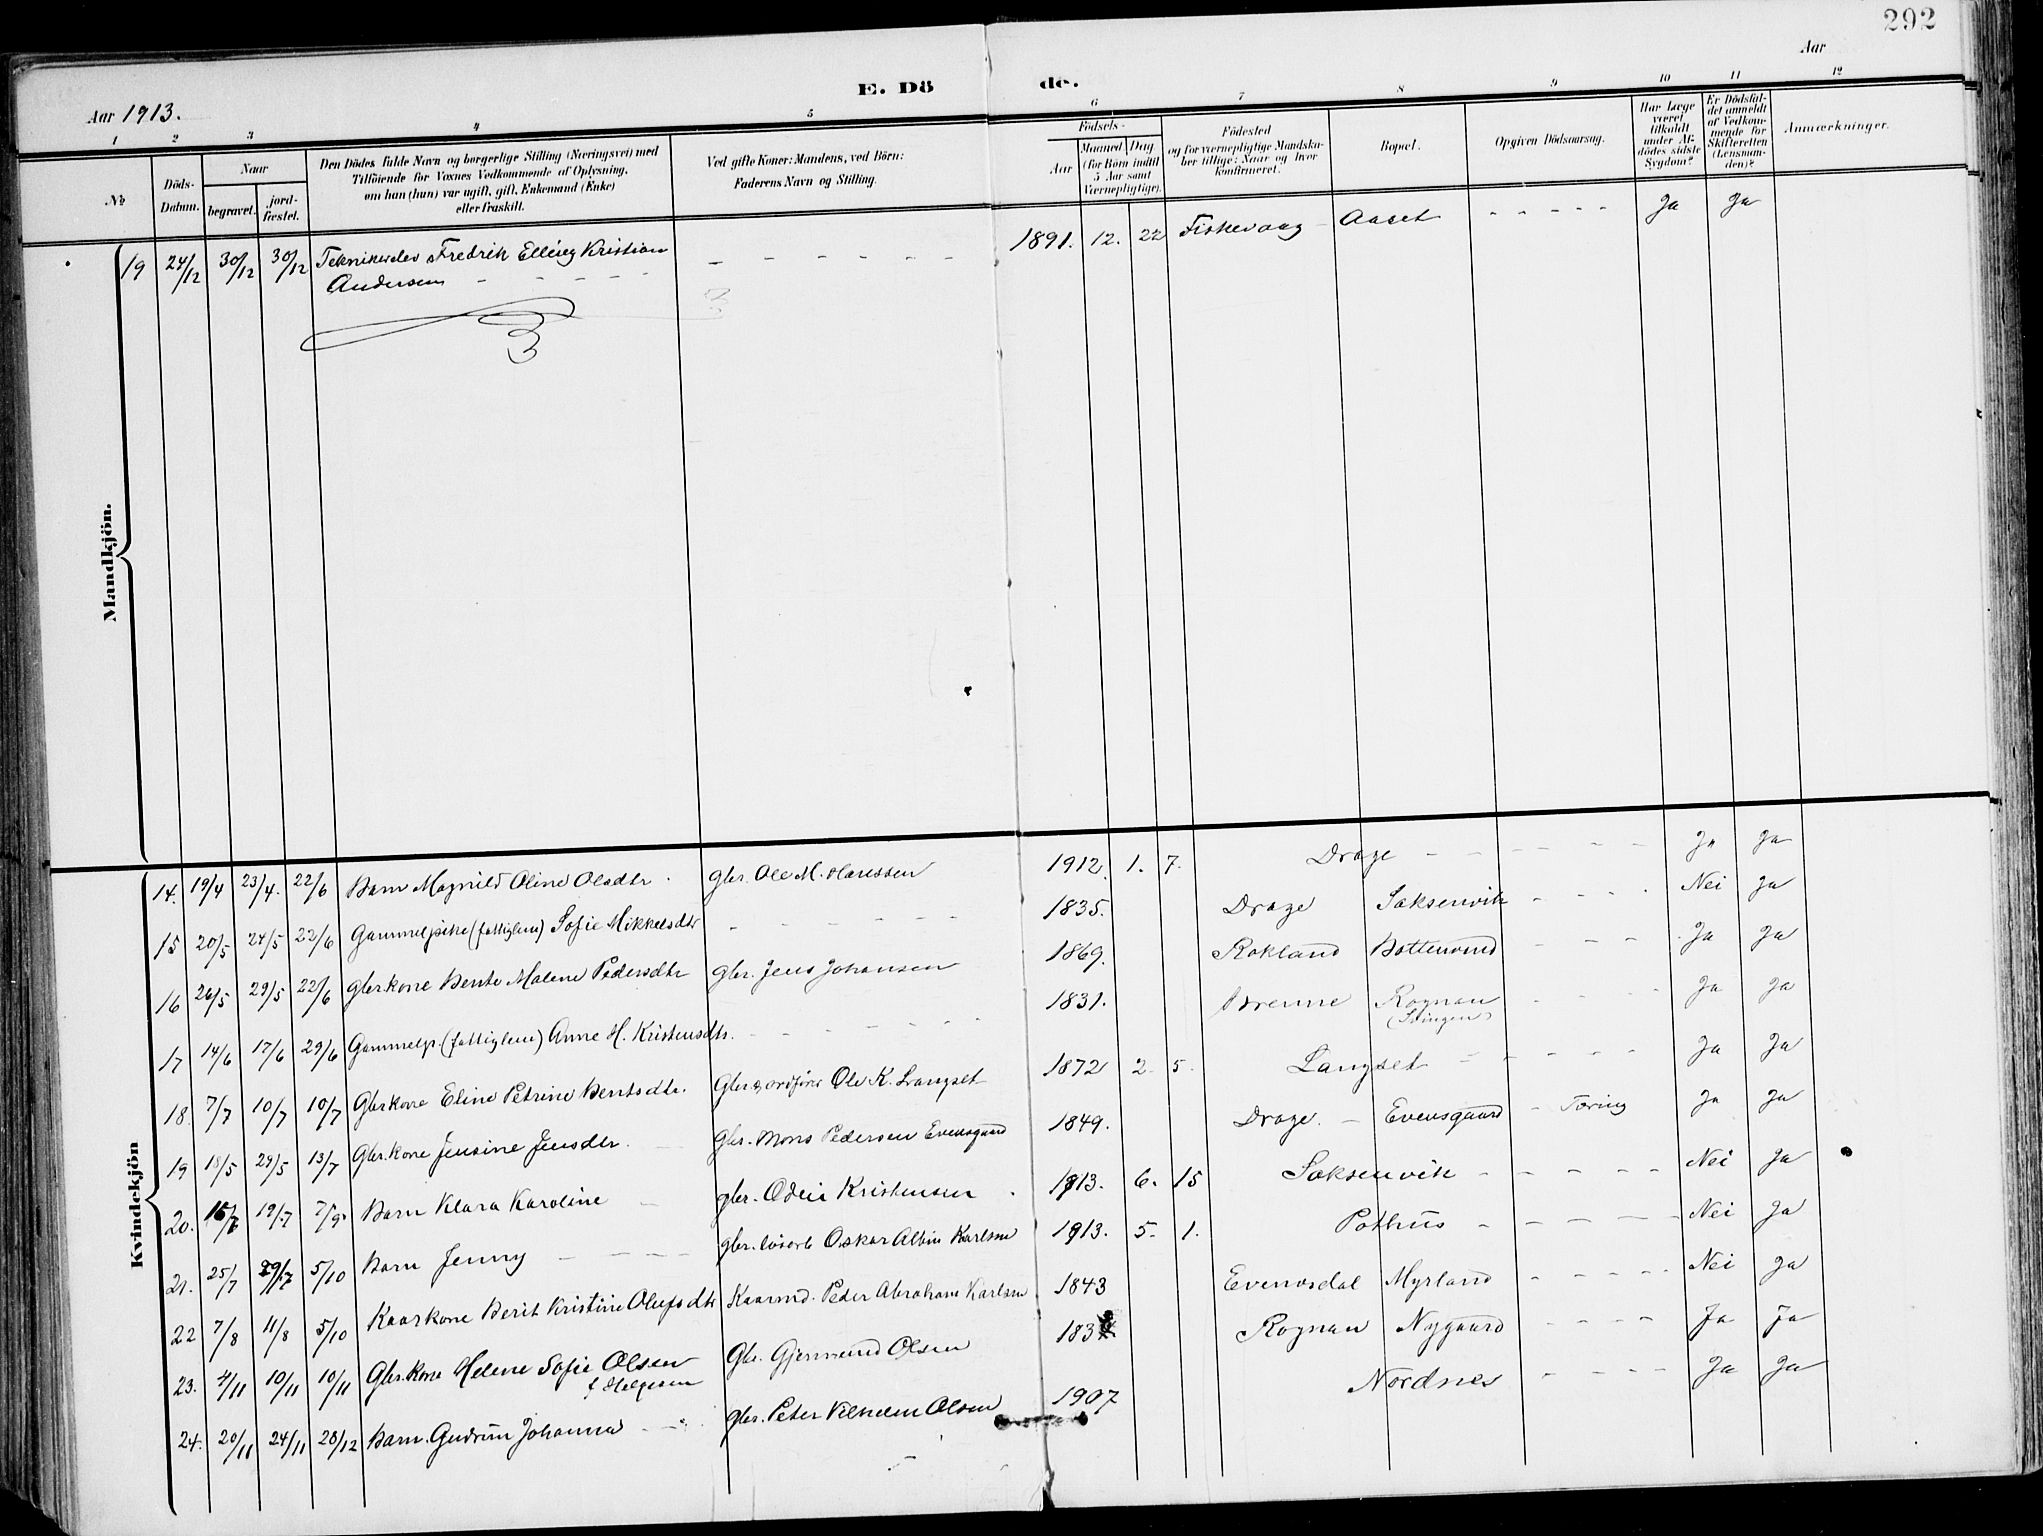 292
Aar 1913.
E. Dö de.
Aar
1 2 3 4 5 6 7 8 9 10 11 12
№
Döds-Datum.
Naar
begravet.
jord-fæstet.
Den Dödes fulde Navn og borgerlige Stilling (Næringsvei) med
Tilföiende for Voxnes Vedkommende af Oplysning,
om han (hun) var ugift, gift, Enkemand (Enke)
eller fraskilt.
Ved gifte Koner: Mandens, ved Börn:
Faderens Navn og Stilling.
Födsels-
Aar
Maaned Dag
(for Börn indtil
5 Aar samt
Værnepligtige).
Födested
og for værnepligtige Mandska-
ber tillige: Naar og hvor
konfirmeret.
Bopæl.
Opgiven Dödsaarsag.
Har Læge
været
tilkaldt
under Af-
dödes sidste
Sygdom?
Er Dödsfal-
det anmeldt
af Vedkom-
mende for
Skifteretten
(Lensman-
den)?
Anmærkninger.
Mandkjön.
19 24/12 30/12 30/12 Teknikerelev Fredrik Elleseg Kristian - - - - - - 1891. 12. 22 Fiskevaag - Aaset - - - - - Ja Ja
Andersen - - - - -
Kvindekjön
14. 19/4 23/4. 22/6 Barn Magnild Oline Olsdtr. gbr. Ole M. Hanssen 1912. 1. 7. Drage - - - - - - Ja Ja
15 20/5 24/5 22/6 Gammelpike (fattiglem) Sofie Mikkelsdtr - - - - - 1835. Drage Saksenvik - - - - Nei Ja
16 26/5 29/5 22/6 gbr.kone Bente Malene Pedersdtr gbr. Jens Johansen 1869. Rokland Bottenvand - - - - Ja Ja
17 14/6 17/6 29/6 Gammelp. (fattiglem) Anne H. Kristensdtr. - - - - - 1831. Brenne Rognan - - - - Ja Ja
18. 7/7 10/7 10/7 Gbr.kone Eline Petrine Bentsdtr. Gbr & ordfører Ole K. Langset 1872 2. 5. Langset - - - - - Ja Ja
19 18/5 24/5 13/7 Gbr.kone Jensine Jensdtr. - Gbr. Mons Pedersen Evensgaard 1849. Drage. - Evensgaard - Tæring Ja Ja
20. 16/7 19/7 7/9. Barn Klara Karoline - gbr. Odin Kristensen . 1913. 6. 15 Saksenvik - - - - - Nei Ja
21. 25/7 29/7 5/10 Barn Jenny - - - - gbr. løsarb Oskar Albin Karlsen 1913. 5. 1. Pothus - - - - - Nei Ja
22 7/8 11/8 5/10 Kaarkone Berit Kristine Olufsdtr Kaarmd. Peder Abraham Karlsen 1843 Evensdal Myrland - - - - - Nei Ja
23. 4/11 10/11 10/11 Gbr.kone Helene Sofie Olsen Gbr. Gjermund Olsen 183 Rognan Nygaard - - - - Ja Ja
f Helgesen
24. 20/11 24/11 28/12 Barn. Gudrun Johanna - - gbr. Peter Vilhelm Olsen 1907 Nordnes - - - - Ja Ja